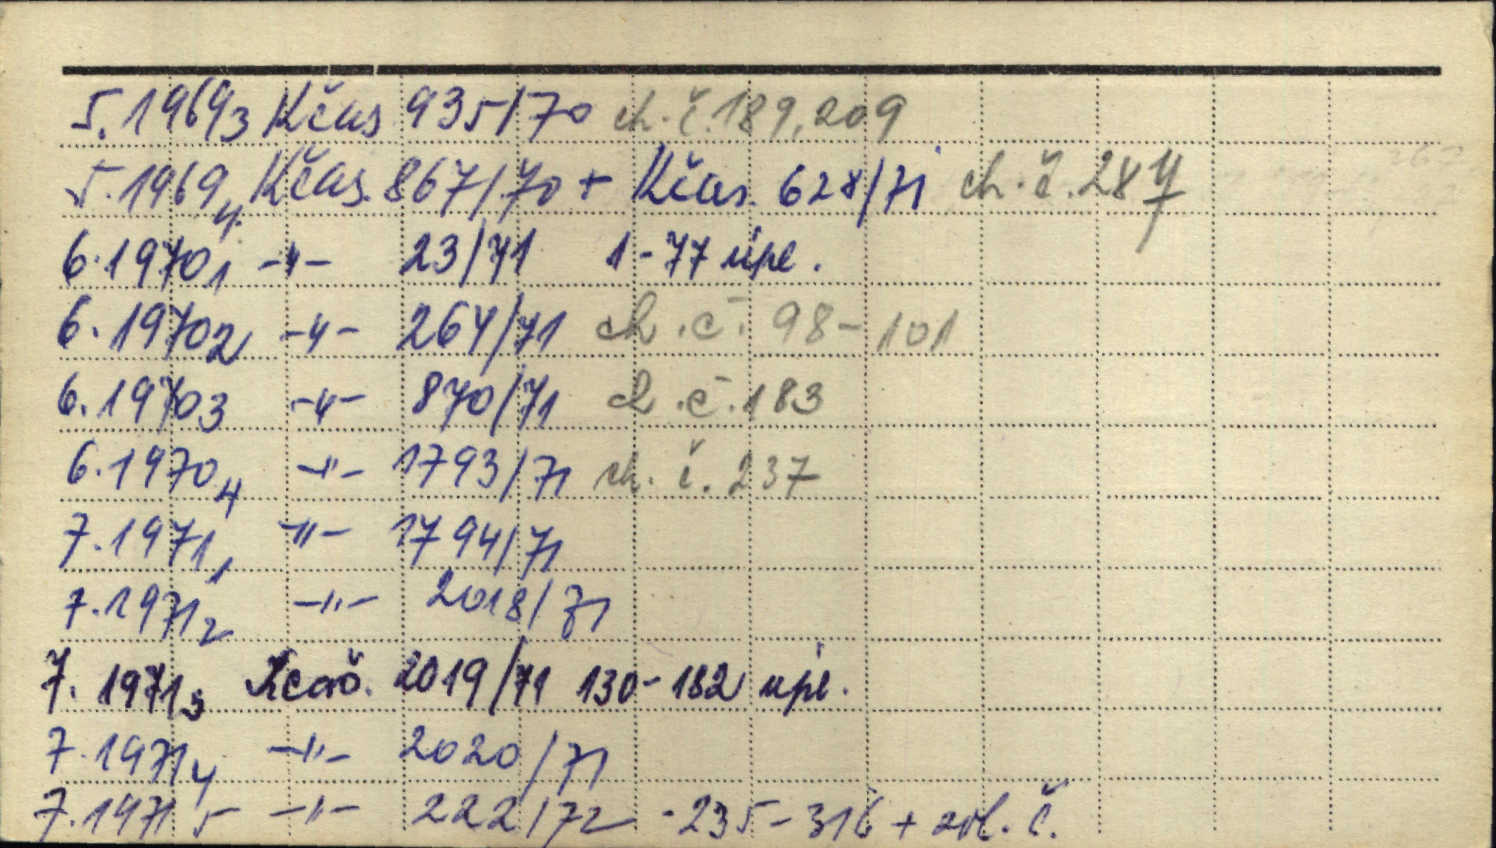 5.1969₃ Kčas 935/70 ch. č. 189, 209
5.1969₄ Kčas. 867/70 + Kčas. 628/71 ch. č. 287
6.1970₁ -"- 23/71 1-77 úpl.
6.1970₂ -"- 264/71 ch. č. 98-101
6.1970₃ -"- 870/71 ch. č. 183
6.1970₄ -"- 1793/71 ch. č. 237
7.1971₁ -"- 1794/71
7.1971₂ -"- 2018/71
7.1971₃ 2019/71 130-182 úpl.
7.1971₄ -"- 2020/71
7.1971₅ -"- 222/72 - 235-316 + zvl. č.